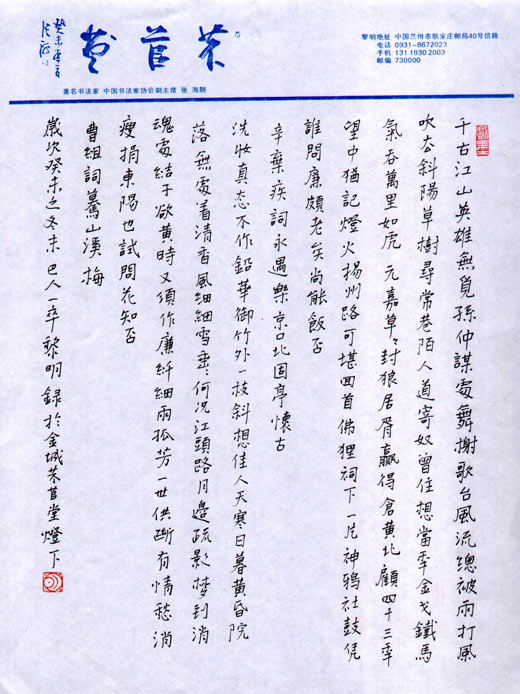 癸未年夏
黎明地址 中国兰州市耿家庄邮局40号信箱
电话 0931-8672023
手机 131 1930 2003
邮编 730000
著名书法家 中国书法家协会副主席 张 海题
千古江山英雄無覓孫仲謀處舞榭歌台風流總被雨打風
吹去斜陽草樹尋常巷陌人道寄奴曾住想當年金戈鐵馬
氣吞萬里如虎 元嘉草々封狼居胥贏得倉黄北顧四十三年
望中猶記燈火揚州路可堪回首佛狸祠下一片神鴉社鼓凭
誰問廉頗老矣尚能飯否
辛棄疾詞永遇樂京口北固亭懷古
洗妝真态不作鉛華御竹外一枝斜想佳人天寒日暮黄昏院
落無處着清香風细细雪垂垂何况江頭路月邊疏影梦到消
魂處结子欲黄時又须作廉纤細雨孤芳一世供断有情愁消
瘦損東陽也試問花知否
曹组詞驀山溪梅
歲次癸未之冬末 巴人一卒黎明録於金城茉苢堂燈下